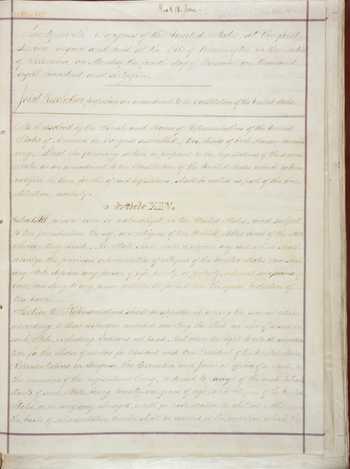 Congress of the United States, at the first
Session, begun and held at the City of Washington, in the District
of Columbia, on Monday the fourth day of December one thousand
eight hundred and sixty-five
Joint Resolution proposing an amendment to the Constitution of the United States.
Be it resolved by the Senate and House of Representatives of the United
States of America in Congress assembled, two thirds of both Houses concur-
ring, That the following article be proposed to the legislatures of the several
States as an amendment to the Constitution of the United States, which, when
ratified by three fourths of said legislatures, shall be valid as part of the Con-
stitution, namely:
Article XIV.
Section 1. born or naturalized in the United States, and subject
to the jurisdiction thereof, are citizens of the United States and of the State
wherein they reside. No State shall make or enforce any law which shall
abridge the privileges or immunities of citizens of the United States; nor shall
any State deprive any person of life, liberty, or property, without due process of
law; nor deny to any person within its jurisdiction the equal protection of
the laws.
Section 2. Representatives shall be apportioned among the several States
according to their respective numbers, counting the whole number of persons in
each State, excluding Indians not taxed. But when the right to vote at any elec-
tion for the choice of electors for President and Vice President of the United States,
Representatives in Congress, the Executive and Judicial officers of a State, or
the members of the Legislature thereof, is denied to any of the male inhabi-
tants of such State, being twenty-one years of age, and citizens of the United
States, or in any way abridged, except for participation in rebellion, or other
the basis of representation therein shall be reduced in the proportion which the